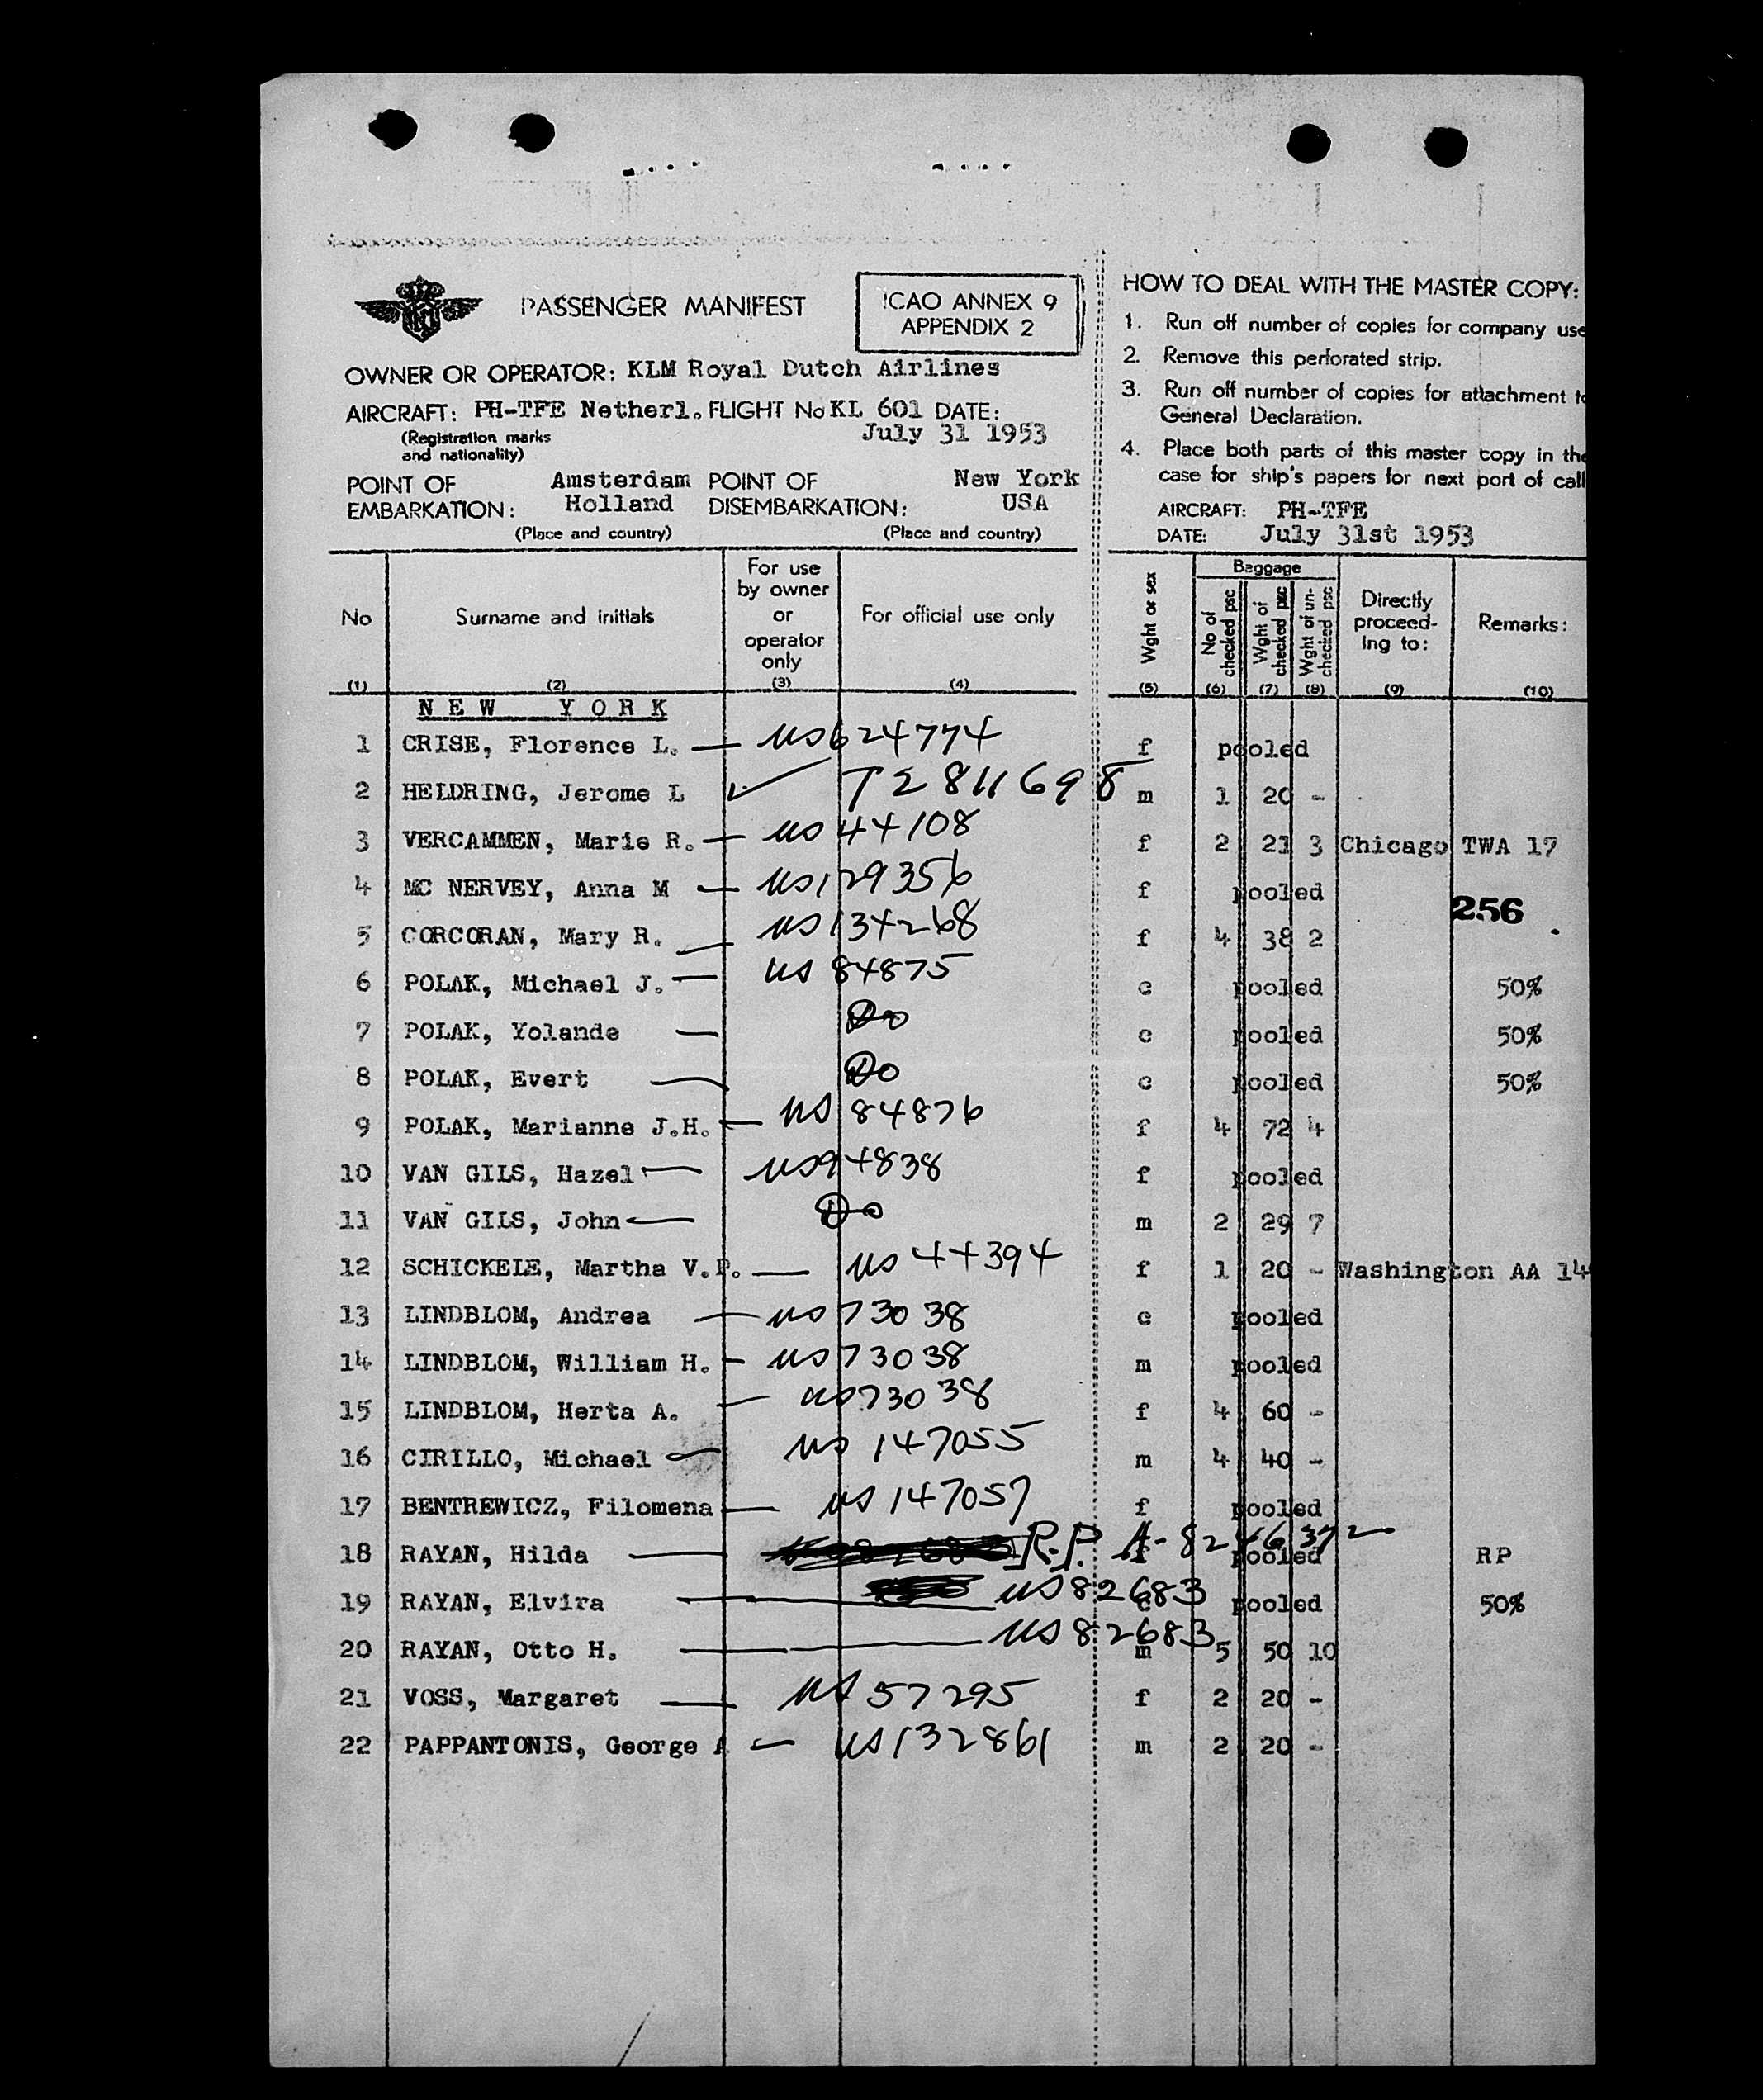 PASSENGER MANIFEST
ICAO ANNEX 9
APPENDIX 2
OWNER OR OPERATOR: KLM Royal Dutch Airlines
AIRCRAFT: PH-TFE Netherl. FLIGHT No KL 601 DATE:
(Registration marks and nationality)
July 31 1953
POINT OF EMBARKATION: Amsterdam Holland
POINT OF DISEMBARKATION: New York USA
(Place and country) (Place and country)
HOW TO DEAL WITH THE MASTER COPY:
1. Run off number of copies for company use
2. Remove this perforated strip.
3. Run off number of copies for attachment to
General Declaration.
4. Place both parts of this master copy in the
case for ship's papers for next port of call
AIRCRAFT: PH-TFE
DATE: July 31st 1953
No (1)
Surname and initials (2)
For use by owner or operator only (3)
For official use only (4)
Wght or sex (5)
Baggage
No of checked psc (6)
Wght of checked psc (7)
Wght of un-checked psc (8)
Directly proceed-ing to: (9)
Remarks: (10)
NEW YORK
1 CRISE, Florence L. — US624774 f pooled
2 HELDRING, Jerome L ✓ T2811698 m 1 20 -
3 VERCAMMEN, Marie R. — US 44108 f 2 21 3 Chicago TWA 17
4 MC NERVEY, Anna M — US129356 f pooled
256
5 CORCORAN, Mary R. — US134268 f 4 38 2
6 POLAK, Michael J. — US 84875 c pooled 50%
7 POLAK, Yolande — Do c pooled 50%
8 POLAK, Evert — Do c pooled 50%
9 POLAK, Marianne J.H. — US 84876 f 4 72 4
10 VAN GILS, Hazel — US94838 f pooled
11 VAN GILS, John — Do m 2 29 7
12 SCHICKELE, Martha V.P. — US 44394 f 1 20 - Washington AA 14
13 LINDBLOM, Andrea — US73038 c pooled
14 LINDBLOM, William H. — US73038 m pooled
15 LINDBLOM, Herta A. — US73038 f 4 60 -
16 CIRILLO, Michael — US 147055 m 4 40 -
17 BENTREWICZ, Filomena — US 147057 f pooled
18 RAYAN, Hilda — R.P. A-8246372 f pooled RP
19 RAYAN, Elvira — US82683 c pooled 50%
20 RAYAN, Otto H. — US82683 m 5 50 10
21 VOSS, Margaret — US 57295 f 2 20 -
22 PAPPANTONIS, George A — US132861 m 2 20 -